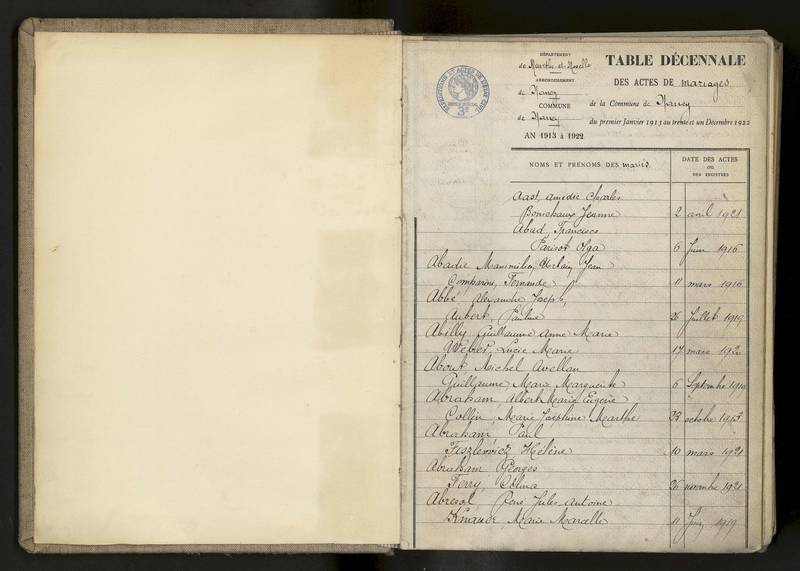 DÉPARTEMENT
de Meurthe-et-Moselle
ARRONDISSEMENT
de Nancy
COMMUNE
de Nancy
AN 1913 à 1922
TABLE DÉCENNALE
DES ACTES DE mariages
de la Commune de Nancy
du premier Janvier 1913 au trente et un Décembre 1922
3e
NOMS ET PRÉNOMS DES mariés.
DATE DES ACTES
OU
DES REGISTRES
Aast, Amédée Charles
Bonichaux Jeanne 2 avril 1921
Abad, Francisco
Parisot Olga 6 Juin 1916
Abadie Maximilien, Jean
Comparini, Fernande 11 mars 1916
Abbé Alexandre Joseph,
Aubert, Pauline 26 Juillet 1919
Abilly Guillaume Anne Marie
Weber Lucie Marie 17 mars 1920
About Michel Avellan
Guillaume Marie Marguerite 6 Septembre 1919
Abraham Albert Marie Eugène
Collin, Marie Joséphine Marthe 23 octobre 1913
Abraham, Paul
Fiszlevicz Hélène 10 mars 1921
Abraham Georges
Ferry, Célina 26 novembre 1921
Abresol, René Jules Antoine
Knauer, Marie Marcelle 11 Juin 1919